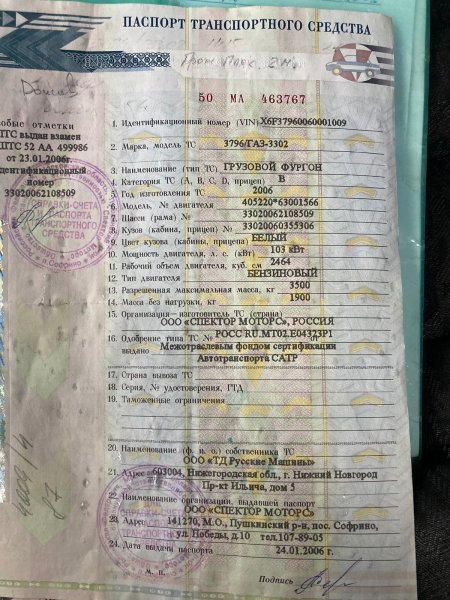 ПАСПОРТ ТРАНСПОРТНОГО СРЕДСТВА
50 МА 463767
обые отметки
ПТС выдан взамен
ПТС 52 АА 499986
от 23.01.2006г
дентификационный
номер
33020062108509
1. Идентификационный номер (VIN) X6F37960060001009
2. Марка, модель ТС 3796/ГАЗ-3302
3. Наименование (тип ТС) ГРУЗОВОЙ ФУРГОН
4. Категория ТС (A, B, C, D, прицеп) B
5. Год изготовления ТС 2006
6. Модель, № двигателя 405220*63001566
7. Шасси (рама) № 33020062108509
8. Кузов (кабина, прицеп) № 33020060355306
9. Цвет кузова (кабины, прицепа) БЕЛЫЙ
10. Мощность двигателя, л. с. (кВт) 103 кВт
11. Рабочий объем двигателя, куб. см 2464
12. Тип двигателя БЕНЗИНОВЫЙ
13. Разрешенная максимальная масса, кг 3500
14. Масса без нагрузки, кг 1900
15. Организация-изготовитель ТС (страна)
ООО «СПЕКТОР МОТОРС», РОССИЯ
16. Одобрение типа ТС № РОСС RU.MT02.E04323P1
выдано Межотраслевым фондом сертификации
Автотранспорта САТР
17. Страна вывоза ТС
18. Серия, № удостоверения, ГТД
19. Таможенные ограничения
20. Наименование (ф. и. о.) собственника ТС
ООО «ТД Русские Машины»
21. Адрес 603004, Нижегородская обл., г. Нижний Новгород
Пр-кт Ильича, дом 5
22. Наименование организации, выдавшей паспорт
ООО «СПЕКТОР МОТОРС»
23. Адрес 141270, М.О., Пушкинский р-н, пос. Софрино,
ул. Победы, д.10 тел.107-89-05
24. Дата выдачи паспорта 24.01.2006 г.
М. П.
Подпись